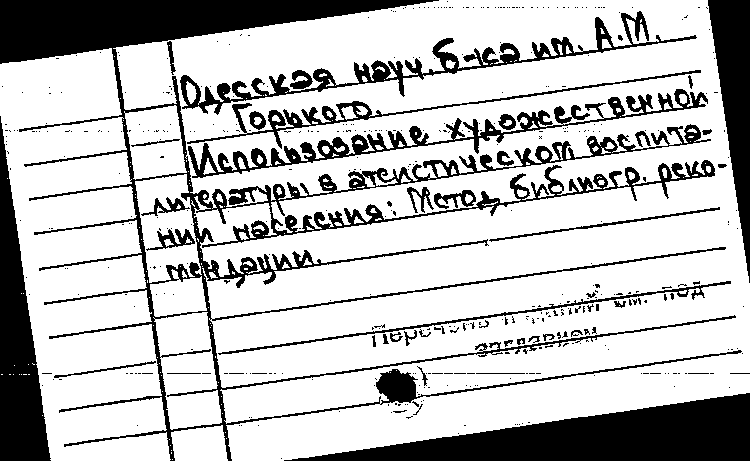 Одесская науч. б-ка им. А.М.
Горького.
Использование художественной
литературы в атеистическом воспита-
нии населения: Метод. библиогр. реко-
мендации.
Перечень изданий см. под
заглавием